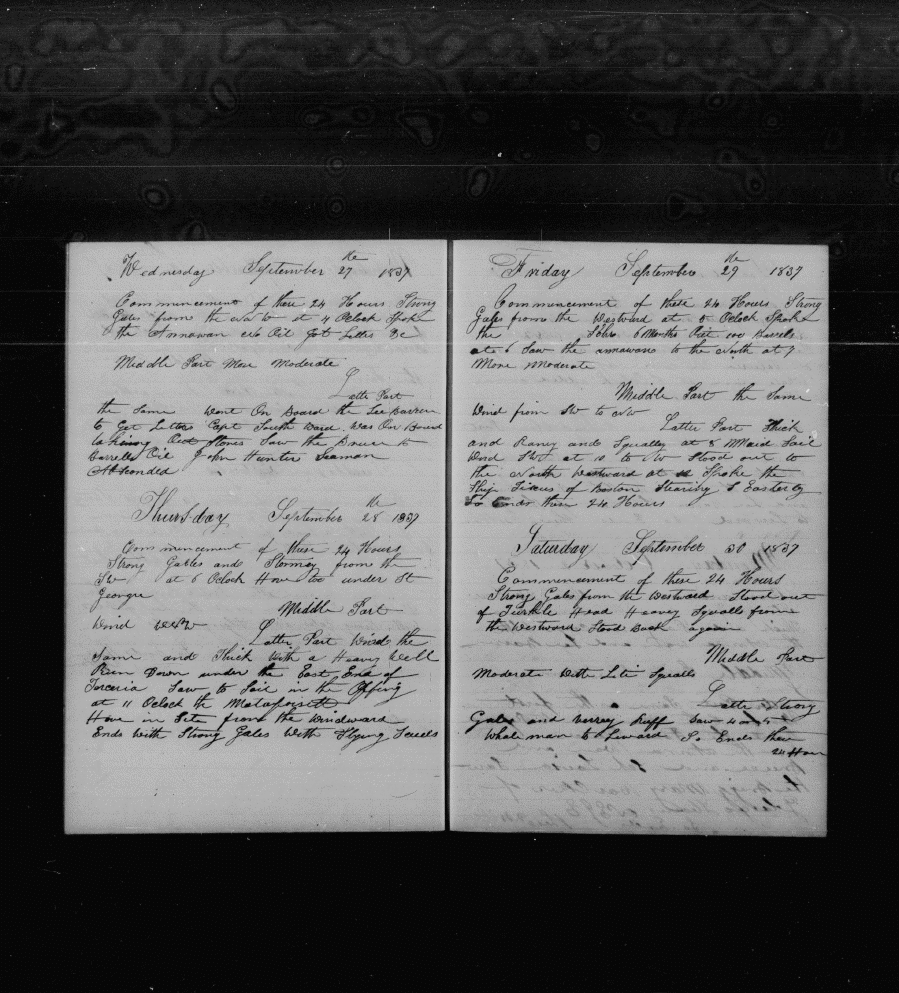 Wednesday September 27 the 1837
Commencement of these 24 Hours Strong
Gales from the NW at 4 Oclock Spoke
the Annawan no Oil got Letters &c
Middle Part More Moderate
Latter Part
the Same Went On Board the
to Get Letters Capt Ward Was On Board
Stores Saw the to
Barrells Oil John Hunter Seaman
Absconded
Thursday September 28 the 1837
Commencement of these 24 Hours
Strong Gables and Stormey from the
SW at 6 Oclock Hove too under St
Georges
Middle Part
Wind
Latter Part Wind the
Same and Thick With a Heavy
Run Down under the East End of
Terceria Saw to Sail in the Offing
at 11 Oclock the Matapoisett
Hove in Site from the Windward
Ends With Strong Gales With Flying
Friday September 29 the 1837
Commencement of these 24 Hours Strong
Gales from the Westward at 5 Oclock Spoke
the 6 Months Out 100 Barrels
at 6 Saw the annawan to the North at 7
More Moderate
Middle Part the Same
Wind from SW to NW
Latter Part Thick
and Raney and Squalley at 8 Maid Sail
Wind SW at 10 to NW Stood out to
the North Westward at 11 Spoke the
Ship of Boston Stearing S Easterly
So Ends these 24 Hours
Saturday September 30 1837
Commencement of these 24 Hours
Strong Gales from the Westward Stood out
of Turkle Head Heavey Squalls from
the Westward Stood Back again
Middle Part
Moderate With Lite Squalls
Latter Strong
Gales and verrey Ruff Saw 4 or 5
Whal man to Leward So Ends these
24 Hour